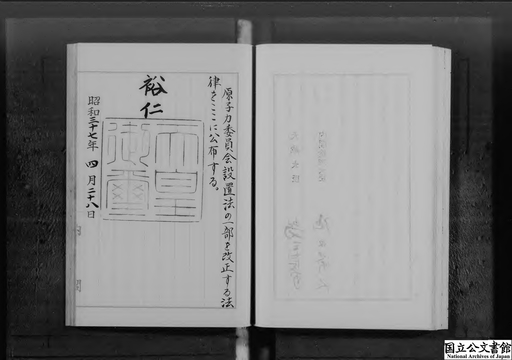 原子力委員会設置法の一部を改正する法
律をここに公布する。
裕仁
天皇
御璽
昭和三十七年 四月二十八日
国立公文書館
National Archives of Japan